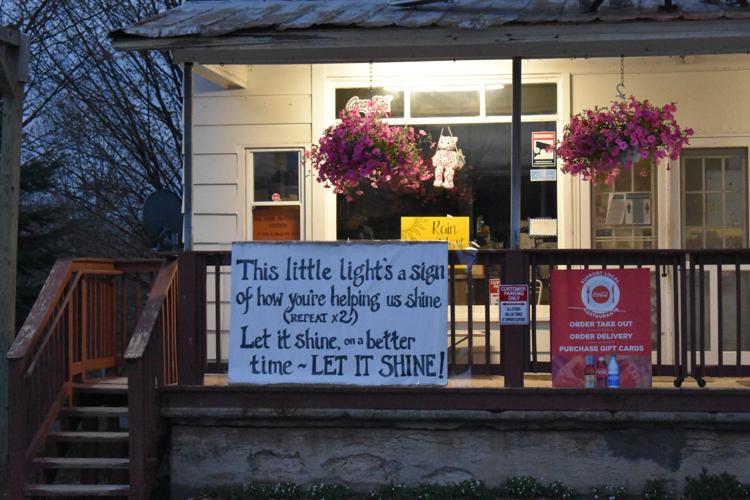 Coca-Cola
Rain
This little light's a sign
of how you're helping us shine
(REPEAT x2!)
Let it shine, on a better
time ~ LET IT SHINE!
CUSTOMER
PARKING
ONLY
SUPPORT LOCAL
Coca-Cola
RESTAURANT
ORDER TAKE OUT
ORDER DELIVERY
PURCHASE GIFT CARDS